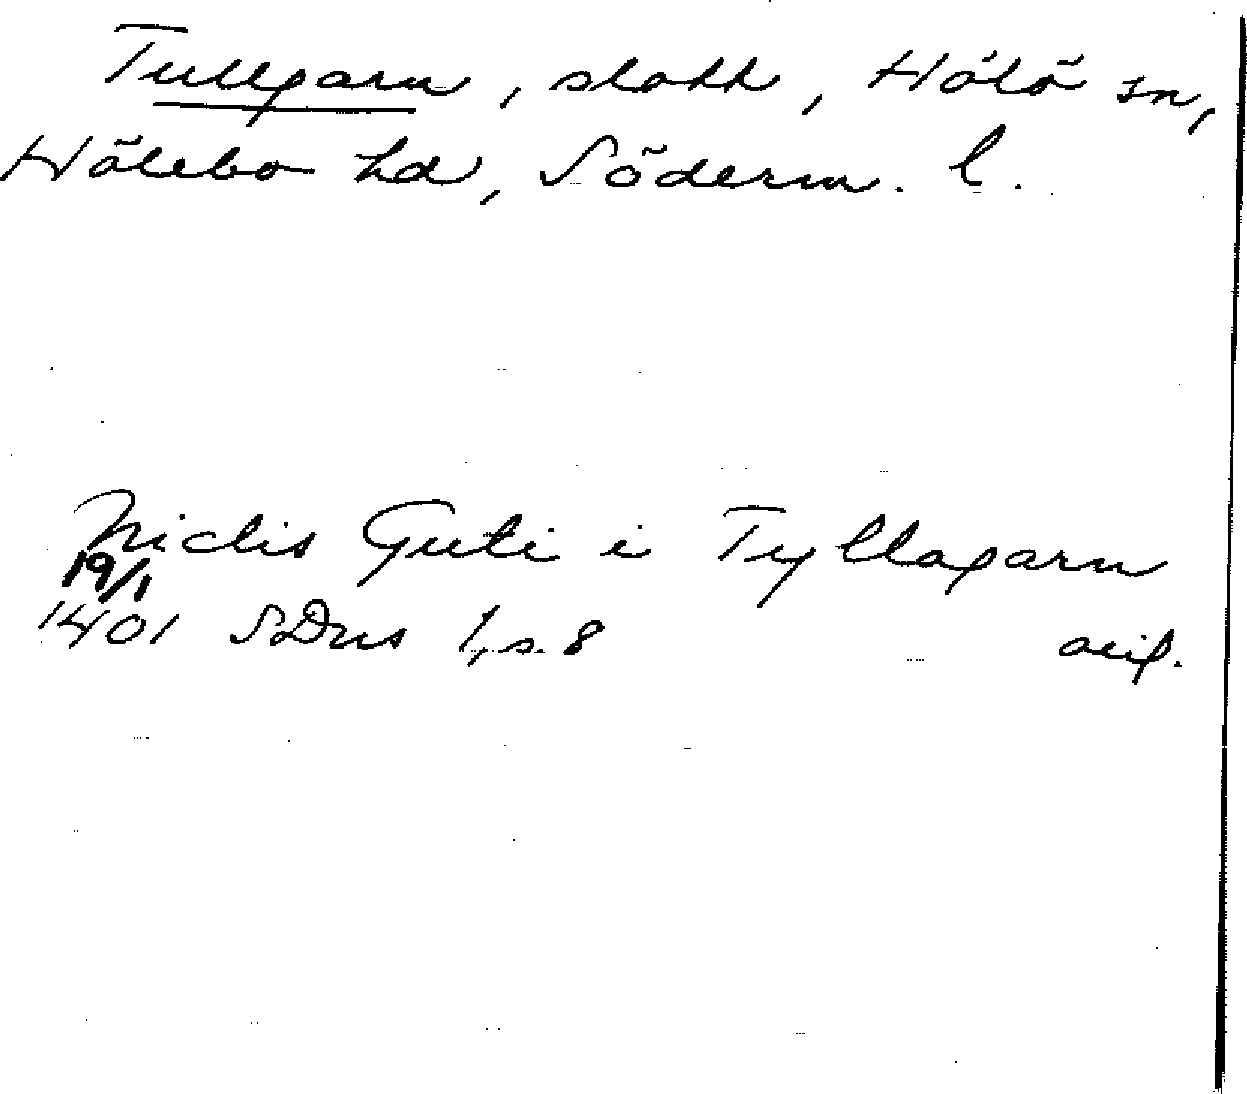 Tullgarn, slott, Hölö sn,
Hölebo hd, Söderm. l.
Niclis Guti i Tyllagarn
19/1
1401 SDns 1, s. 8 avil.